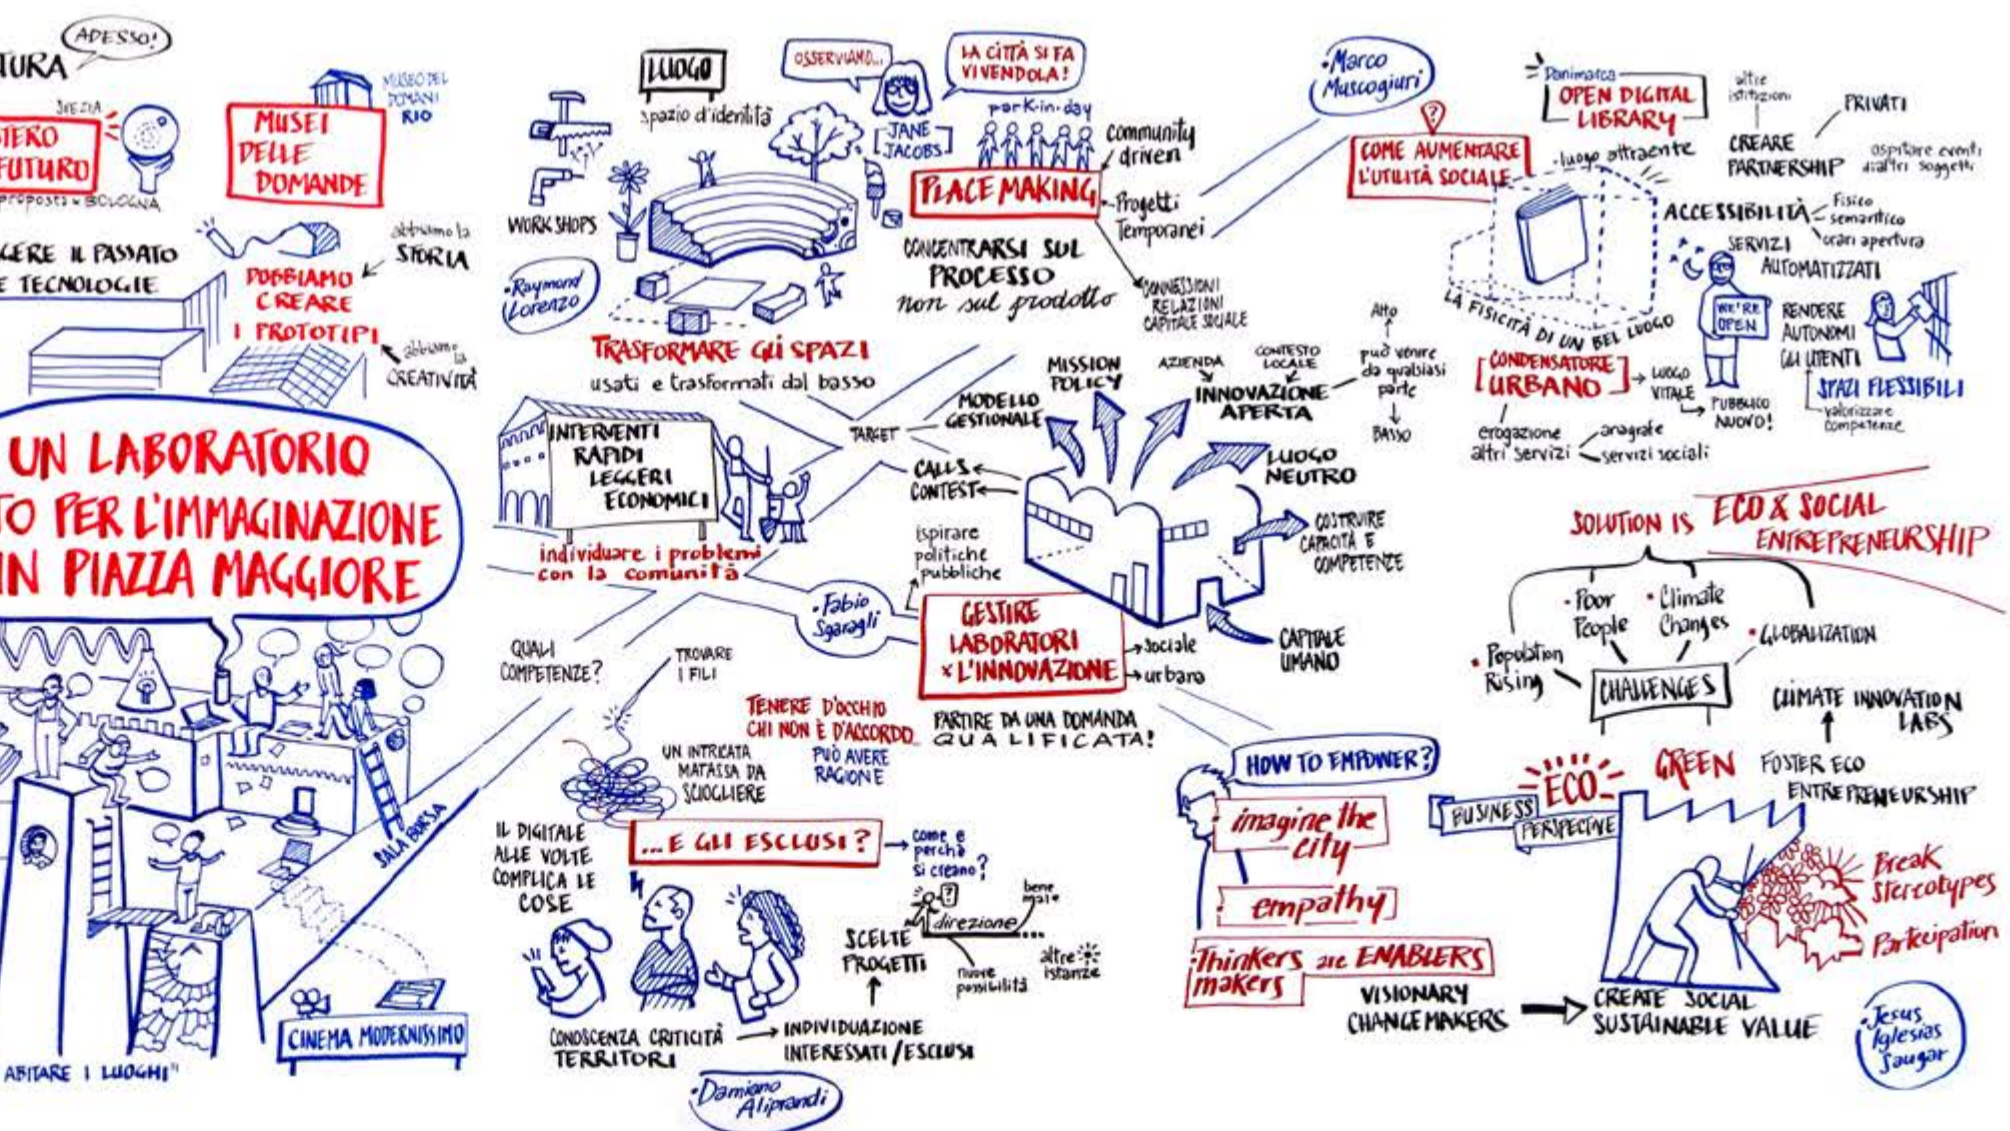 ADESSO!
TURA
SPEZIA
STERO
FUTURO
proposta x BOLOGNA
MUSEO DEL
DOMANI
RIO
MUSEI
DELLE
DOMANDE
GERE IL PASSATO
E TECNOLOGIE
abbiamo la
STORIA
DOBBIAMO
CREARE
I PROTOTIPI
abbiamo
la
CREATIVITÀ
UN LABORATORIO
TO PER L'IMMAGINAZIONE
IN PIAZZA MAGGIORE
SALA BORSA
CINEMA MODERNISSIMO
ABITARE I LUOGHI"
LUOGO
spazio d'identità
WORKSHOPS
Raymond
Lorenzo
OSSERVIAMO...
LA CITTÀ SI FA
VIVENDOLA!
JANE
JACOBS
park-in-day
community
driven
PLACE MAKING
Progetti
Temporanei
CONCENTRARSI SUL
PROCESSO
non sul prodotto
CONNESSIONI
RELAZIONI
CAPITALE SOCIALE
TRASFORMARE GLI SPAZI
usati e trasformati dal basso
INTERVENTI
RAPIDI
LEGGERI
ECONOMICI
individuare i problemi
con la comunità
Fabio
Sgaragli
TARGET
MODELLO
GESTIONALE
MISSION
POLICY
AZIENDA
CONTESTO
LOCALE
INNOVAZIONE
APERTA
Alto
può venire
da qualsiasi
parte
BASSO
CALLS
CONTEST
LUOGO
NEUTRO
COSTRUIRE
CAPACITÀ E
COMPETENZE
CAPITALE
UMANO
ispirare
politiche
pubbliche
GESTIRE
LABORATORI
x L'INNOVAZIONE
sociale
urbana
PARTIRE DA UNA DOMANDA
QUALIFICATA!
QUALI
COMPETENZE?
TROVARE
I FILI
TENERE D'OCCHIO
CHI NON È D'ACCORDO
PUÒ AVERE
RAGIONE
UN INTRICATA
MATASSA DA
SCIOGLIERE
IL DIGITALE
ALLE VOLTE
COMPLICA LE
COSE
...E GLI ESCLUSI?
come e
perchè
si creano?
?
direzione
bene
male
...
SCELTE
PROGETTI
nuove
possibilità
altre
istanze
CONOSCENZA CRITICITÀ
TERRITORI
INDIVIDUAZIONE
INTERESSATI/ESCLUSI
Damiano
Aliprandi
Marco
Muscogiuri
?
COME AUMENTARE
L'UTILITÀ SOCIALE
Danimarca
OPEN DIGITAL
LIBRARY
luogo attraente
altre
istituzioni
CREARE
PARTNERSHIP
PRIVATI
ospitare eventi
di altri soggetti
ACCESSIBILITÀ
Fisico
semantico
orari apertura
SERVIZI
AUTOMATIZZATI
WE'RE
OPEN
LA FISICITÀ DI UN BEL LUOGO
RENDERE
AUTONOMI
GLI UTENTI
SPAZI FLESSIBILI
valorizzare
competenze
CONDENSATORE
URBANO
LUOGO
VITALE
PUBBLICO
NUOVO!
erogazione
altri servizi
anagrafe
servizi sociali
SOLUTION IS ECO & SOCIAL
ENTREPRENEURSHIP
Population
Rising
Poor
People
Climate
Changes
GLOBALIZATION
CHALLENGES
CLIMATE INNOVATION
LABS
FOSTER ECO
ENTREPRENEURSHIP
HOW TO EMPOWER?
imagine the
city
empathy
Thinkers are ENABLERS
makers
BUSINESS
PERSPECTIVE
ECO
GREEN
Break
Stereotypes
Partecipation
VISIONARY
CHANGEMAKERS
CREATE SOCIAL
SUSTAINABLE VALUE
Jesus
Iglesias
Saugar